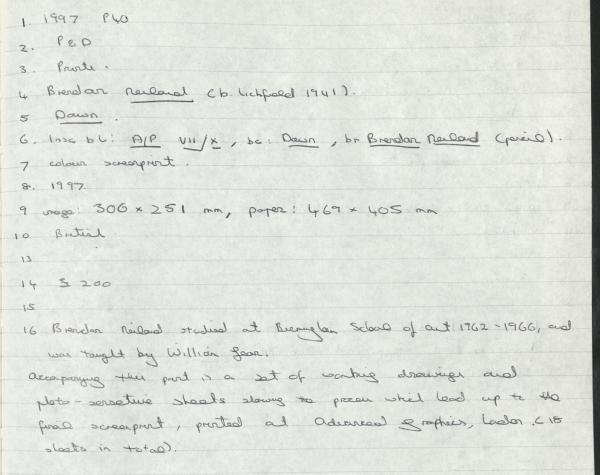 1. 1997 P40
2. P & D
3. Prints.
4 Brendan Neiland (b. Lichfield 1941).
5 Dawn.
6. Insc bl: A/P VII/X, bc: Dawn, br Brendan Neiland (pencil).
7 colour screenprint.
8. 1997.
9 image: 306 x 251 mm, paper: 469 x 405 mm
10 British
13
14 £ 200
15
16 Brendan Neiland studied at Birmingham School of art 1962-1966, and
was taught by William Gear.
Accompanying this print is a set of working drawings and
photo-sensitive sheets showing the process which lead up to the
final screenprint, printed at Advanced Graphics, London. (18
sheets in total).